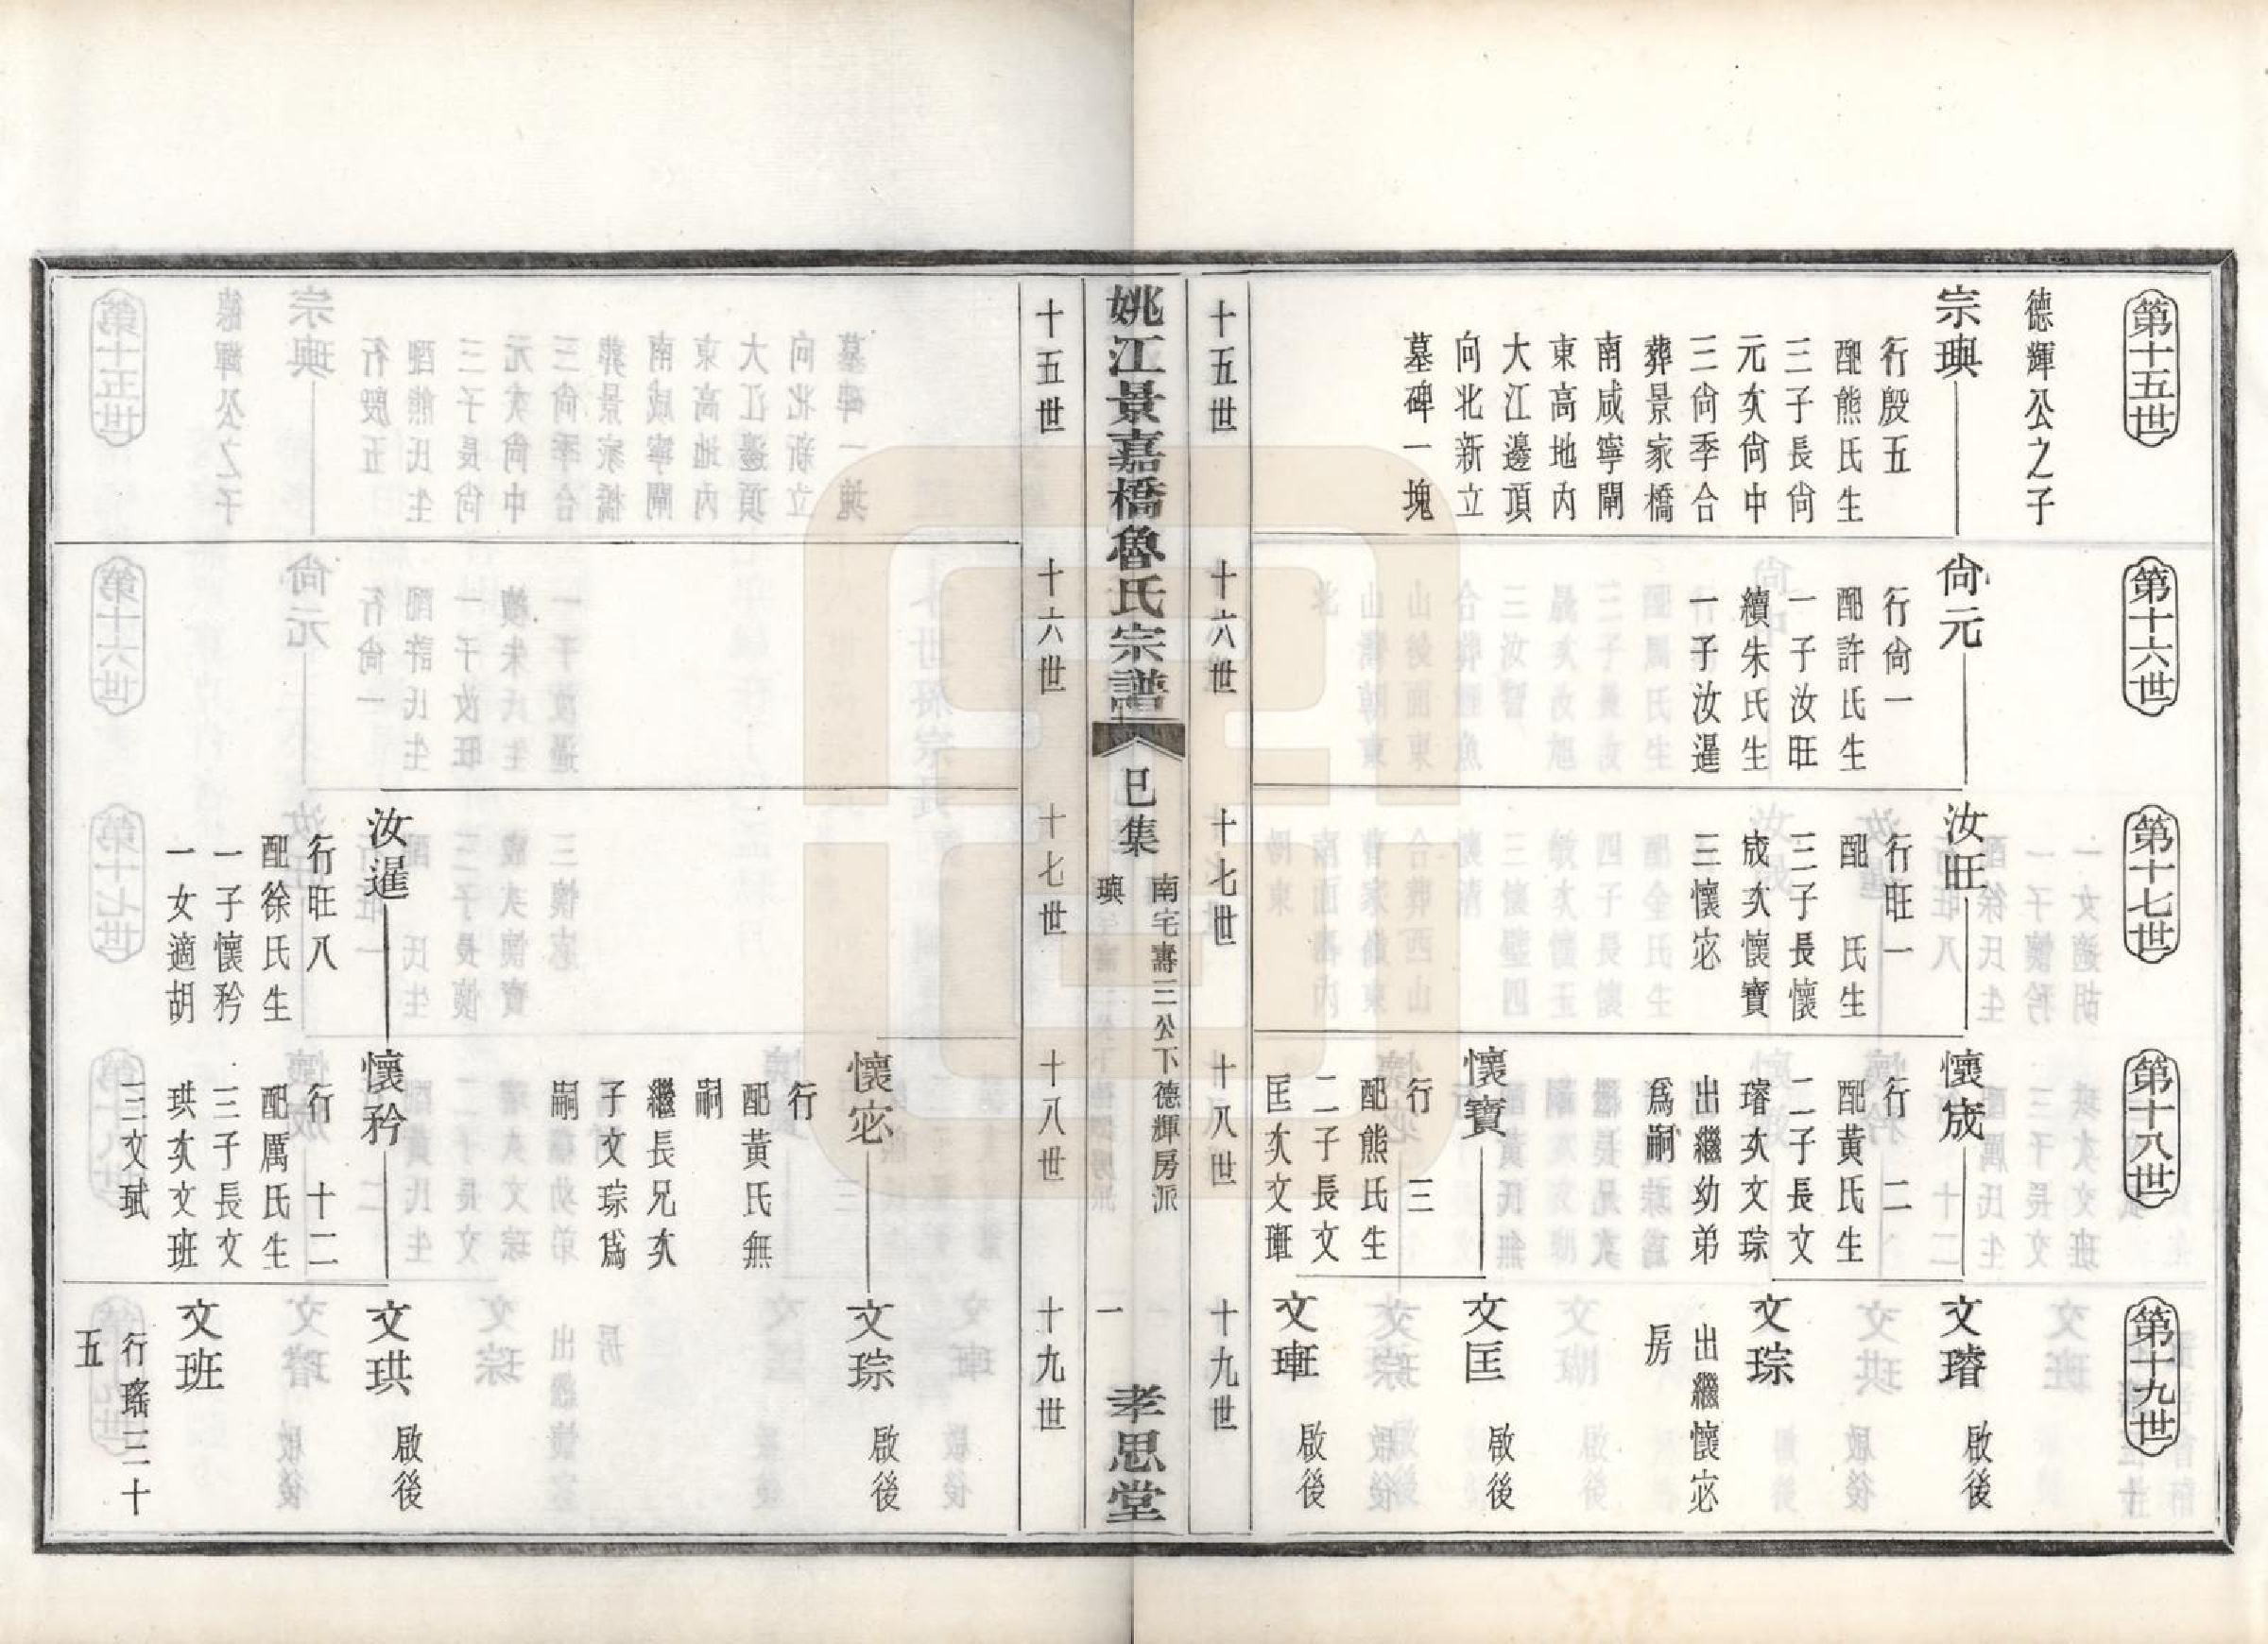 第十五世
德輝公之子
宗璵
行殷五
配熊氏生
三子長尙
元亥尙中
三尙季合
葬景家橋
南咸寧閘
東高地內
大江邊頂
向北新立
墓碑一塊
第十六世
尙元
行尙一
配許氏生
一子汝旺
續朱氏生
一子汝暹
第十七世
汝旺
行旺一
配　氏生
三子長懷
宬亥懷寶
三懷宓
第十八世
懷宬
行　二
配黃氏生
二子長文
璿亥文琮
出繼幼弟
爲嗣
懷寶
行　三
配熊氏生
二子長文
匡亥文
第十九世
文璿
啟後
文琮
出繼懷宓
房
文匡
啟後
文
啟後
十五世
十六世
十七世
十八世
十九世
姚江景嘉橋魯氏宗譜
巳集
南宅壽三公下德輝房派
璵
一
孝思堂
十五世
十六世
十七世
十八世
十九世
汝暹
行旺八
配徐氏生
一子懷矜
一女適胡
懷宓
行
配黃氏無
嗣
繼長兄亥
子文琮爲
嗣
懷矜
行　十二
配厲氏生
三子長文
珙亥文班
三文珷
文琮
啟後
文珙
啟後
文班
行瑤三十
五